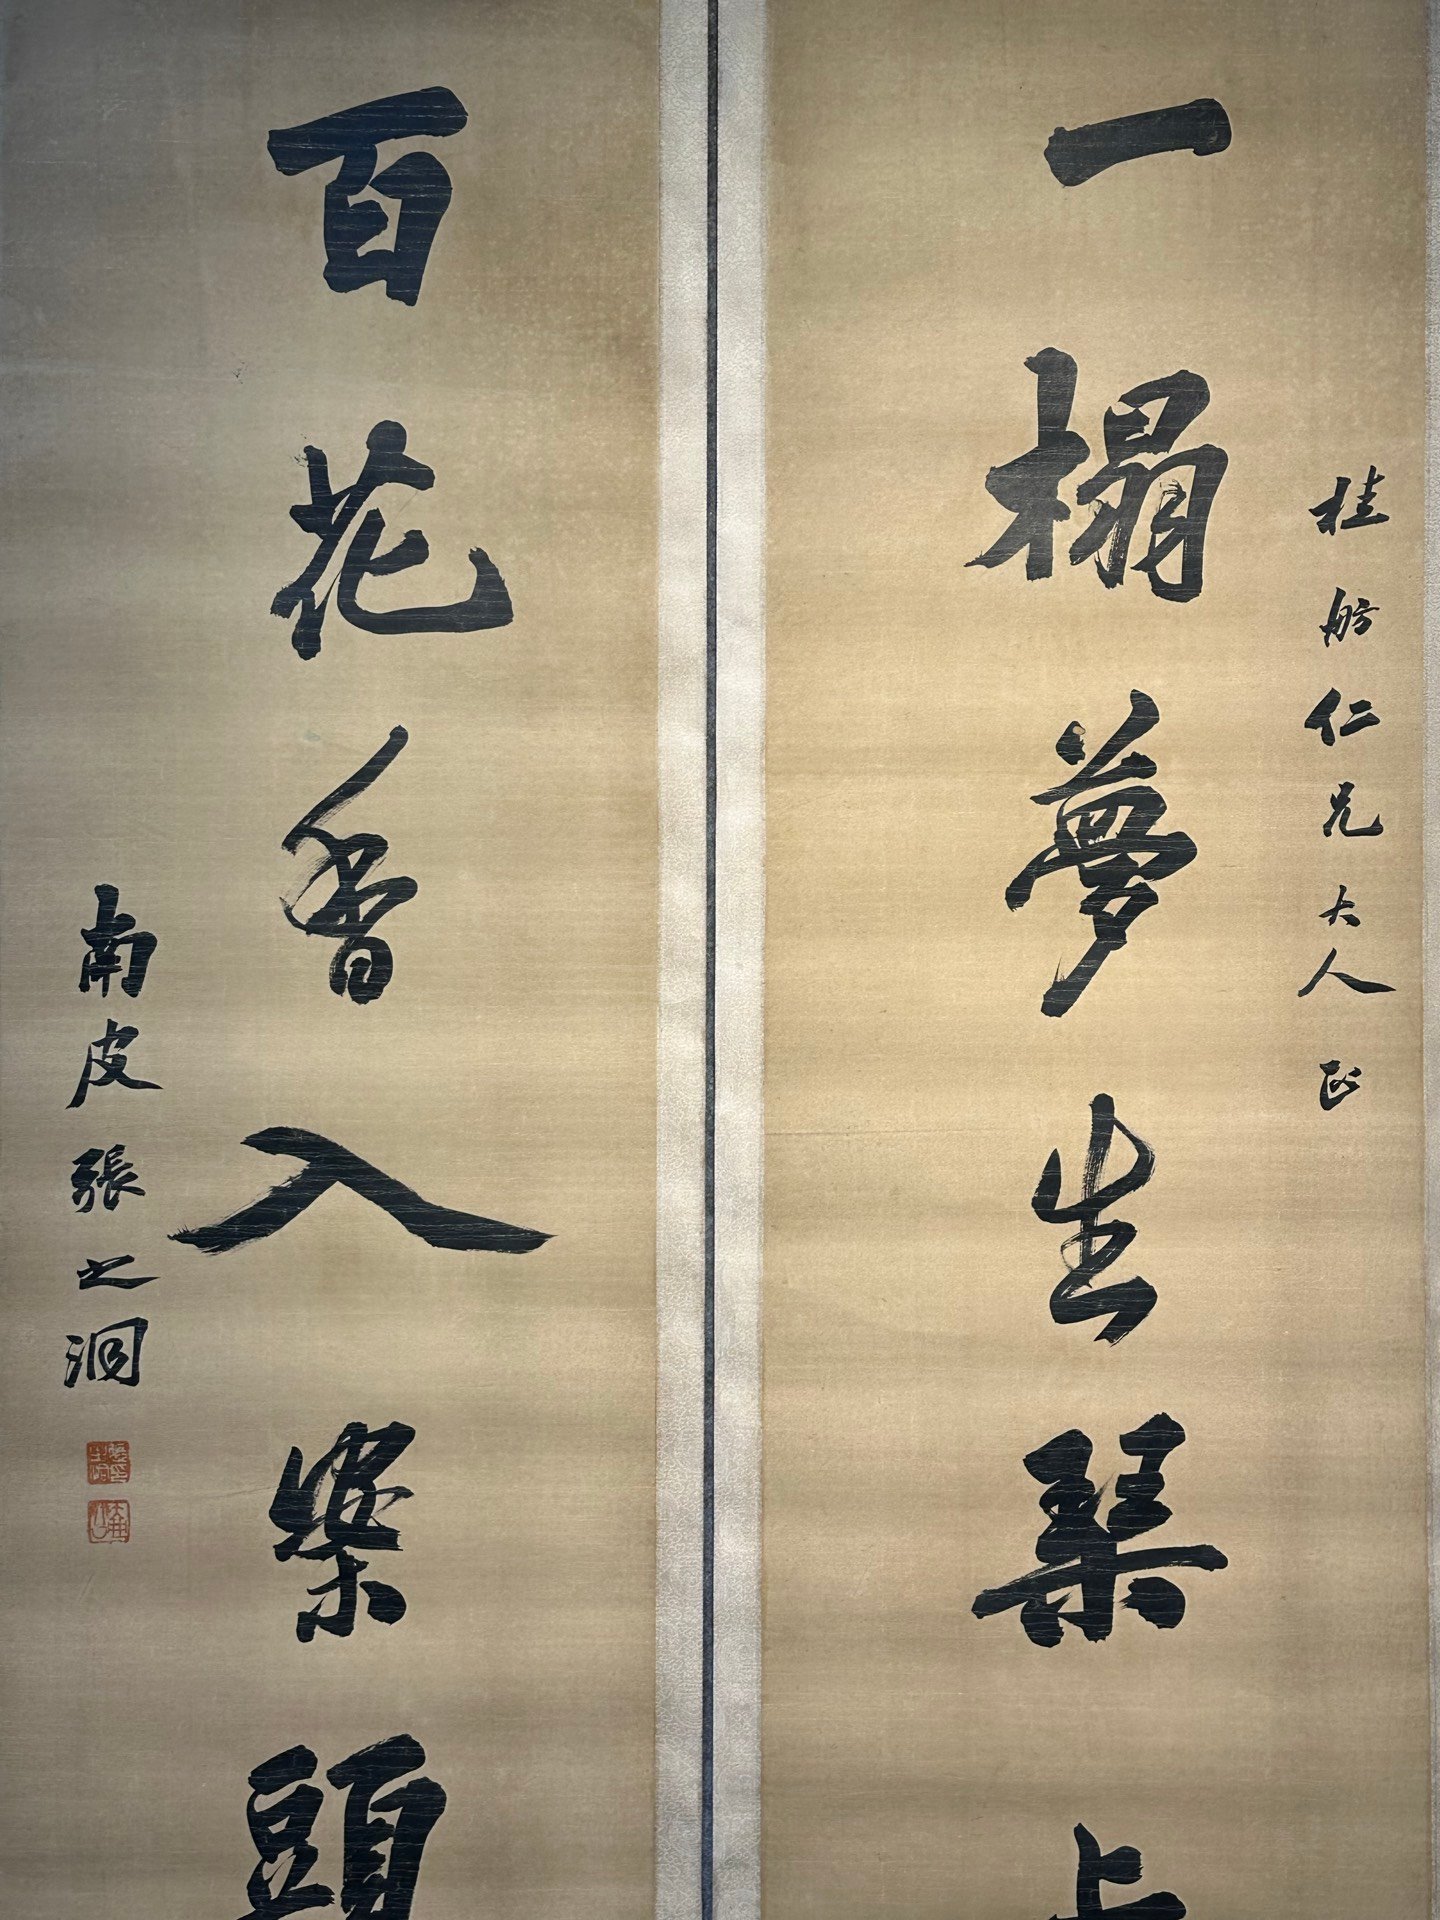 桂舫仁兄大人正
一榻夢生琴上
百花香入案頭
南皮張之洞